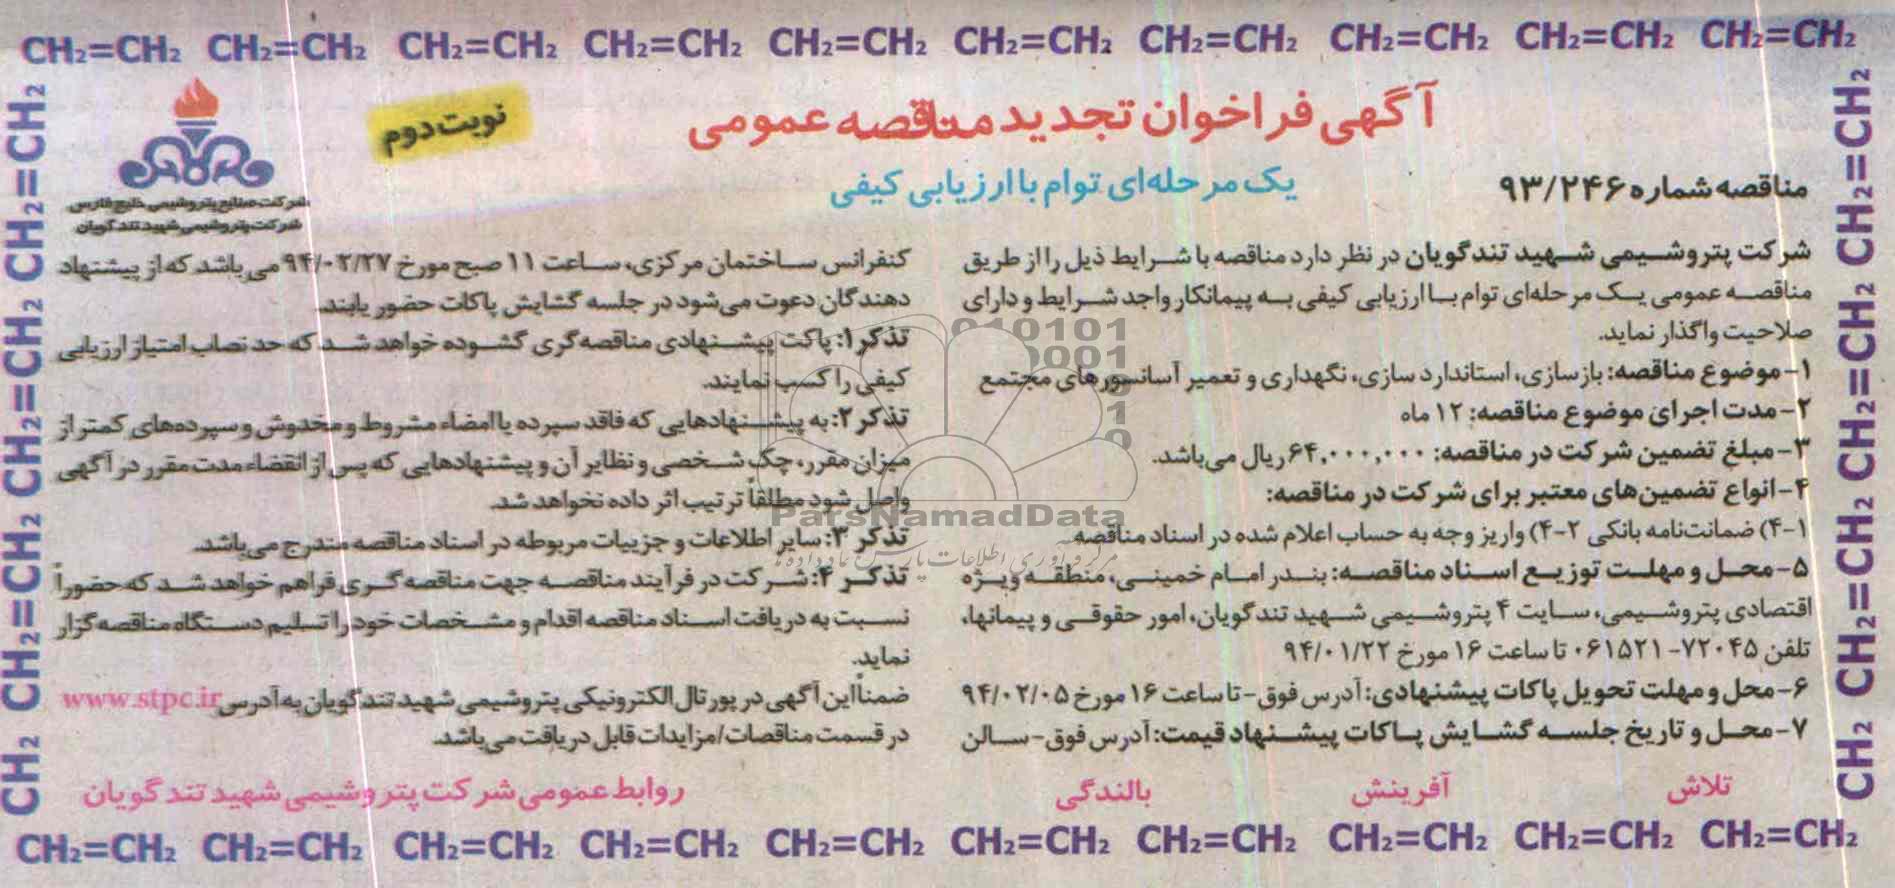 CH2=CH2 CH2=CH2 CH2=CH2 CH2=CH2 CH2=CH2 CH2=CH2 CH2=CH2 CH2=CH2 CH2=CH2 CH2=CH2
آگهی فراخوان تجدید مناقصه عمومی
نوبت دوم
یک مرحله‌ای توام با ارزیابی کیفی
مناقصه شماره ۹۳/۲۴۶
شرکت صنایع پتروشیمی خلیج فارس
شرکت پتروشیمی شهید تندگویان
شرکت پتروشیمی شهید تندگویان در نظر دارد مناقصه با شرایط ذیل را از طریق
مناقصه عمومی یک مرحله‌ای توام با ارزیابی کیفی به پیمانکار واجد شرایط و دارای
صلاحیت واگذار نماید.
۱- موضوع مناقصه: بازسازی، استاندارد سازی، نگهداری و تعمیر آسانسورهای مجتمع
۲- مدت اجرای موضوع مناقصه: ۱۲ ماه
۳- مبلغ تضمین شرکت در مناقصه: ۶۴,۰۰۰,۰۰۰ ریال می‌باشد.
۴- انواع تضمین‌های معتبر برای شرکت در مناقصه:
۴-۱) ضمانت‌نامه بانکی ۴-۲) واریز وجه به حساب اعلام شده در اسناد مناقصه.
۵- محل و مهلت توزیع اسناد مناقصه: بندر امام خمینی، منطقه ویژه
اقتصادی پتروشیمی، سایت ۴ پتروشیمی شهید تندگویان، امور حقوقی و پیمانها،
تلفن ۷۲۰۴۵-۰۶۱۵۲۱ تا ساعت ۱۶ مورخ ۹۴/۰۱/۲۲
۶- محل و مهلت تحویل پاکات پیشنهادی: آدرس فوق- تا ساعت ۱۶ مورخ ۹۴/۰۲/۰۵
۷- محل و تاریخ جلسه گشایش پاکات پیشنهاد قیمت: آدرس فوق- سالن
کنفرانس ساختمان مرکزی، ساعت ۱۱ صبح مورخ ۹۴/۰۲/۲۷ می باشد که از پیشنهاد
دهندگان دعوت می‌شود در جلسه گشایش پاکات حضور یابند.
تذکر ۱: پاکت پیشنهادی مناقصه‌گری گشوده خواهد شد که حد نصاب امتیاز ارزیابی
کیفی را کسب نمایند.
تذکر ۲: به پیشنهادهایی که فاقد سپرده یا امضاء مشروط و مخدوش و سپرده‌های کمتر از
میزان مقرر، چک شخصی و نظایر آن و پیشنهادهایی که پس از انقضاء مدت مقرر در آگهی
واصل شود مطلقاً ترتیب اثر داده نخواهد شد.
تذکر ۳: سایر اطلاعات و جزییات مربوطه در اسناد مناقصه مندرج می‌باشد.
تذکر ۴: شرکت در فرآیند مناقصه جهت مناقصه گری فراهم خواهد شد که حضوراً
نسبت به دریافت اسناد مناقصه اقدام و مشخصات خود را تسلیم دستگاه مناقصه‌گزار
نماید.
ضمناً این آگهی در پورتال الکترونیکی پتروشیمی شهید تندگویان به آدرس www.stpc.ir
در قسمت مناقصات/مزایدات قابل دریافت می‌باشد.
تلاش آفرینش بالندگی
روابط عمومی شرکت پتروشیمی شهید تندگویان
CH2=CH2 CH2=CH2 CH2=CH2 CH2=CH2 CH2=CH2 CH2=CH2 CH2=CH2 CH2=CH2 CH2=CH2 CH2=CH2
CH2 CH2=CH2 CH2=CH2 CH2=CH2
CH2 CH2=CH2 CH2=CH2 CH2=CH2
ParsNamadData
مرکز فرآوری اطلاعات پارس نماد داده‌ها